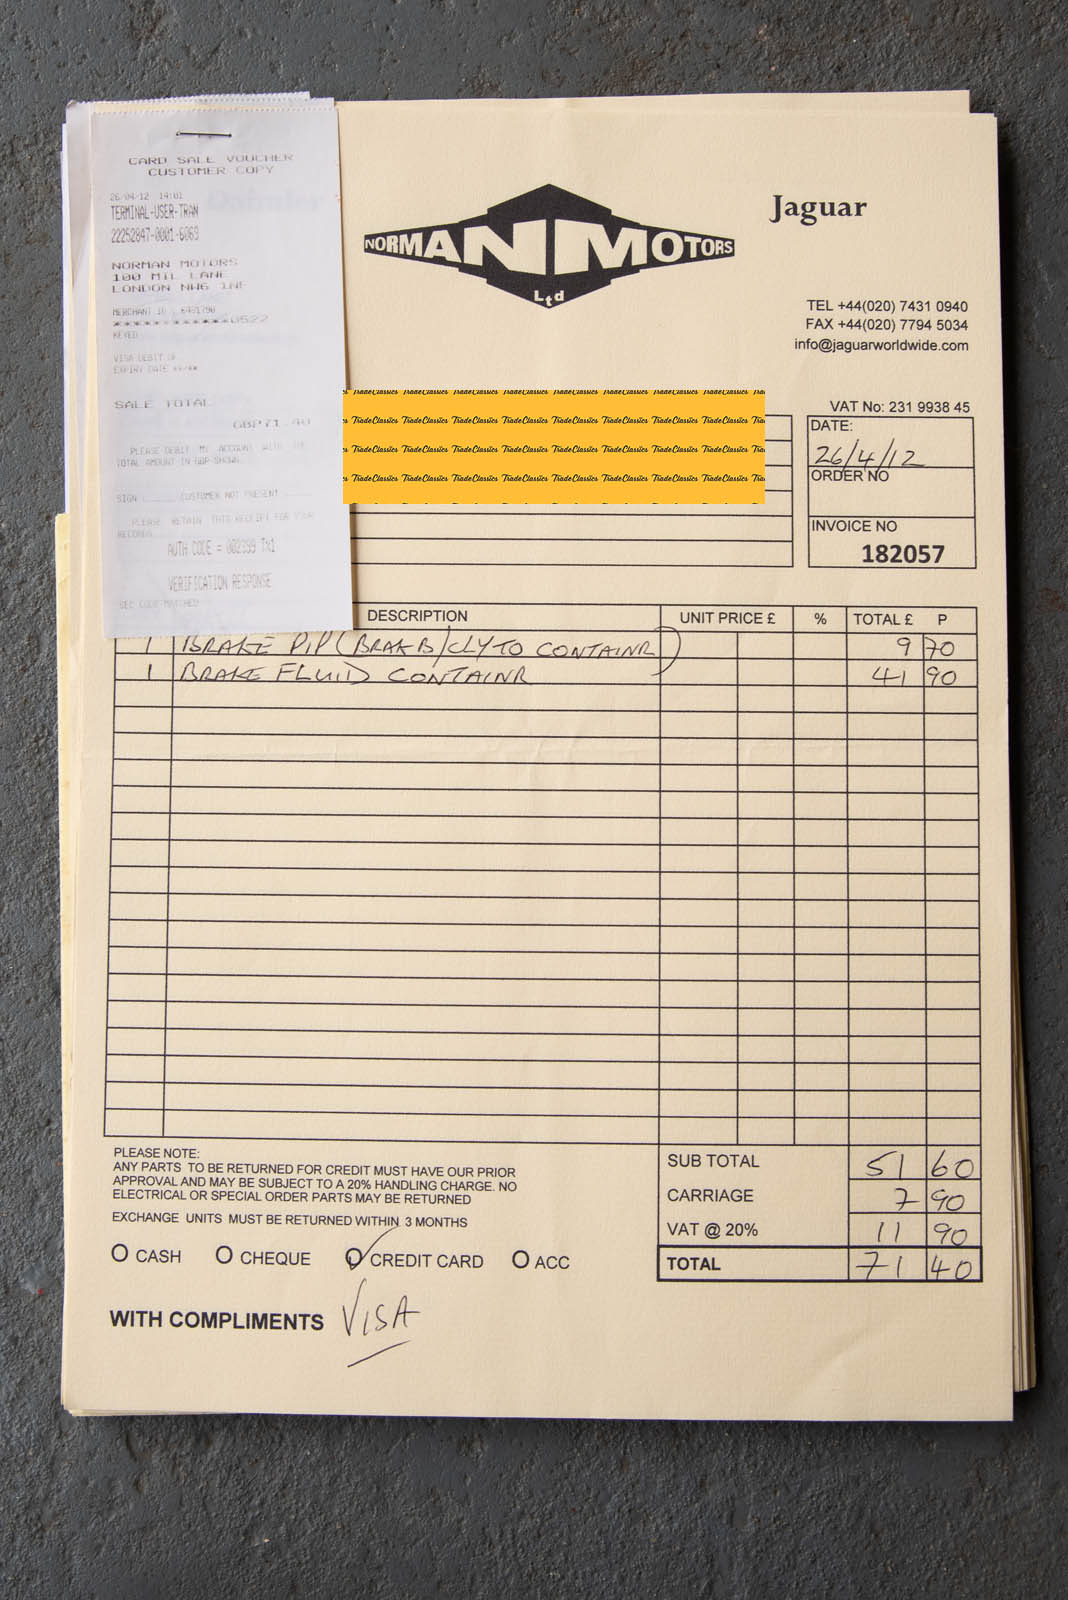 CARD SALE VOUCHER
CUSTOMER COPY
26/04/12 14:01
TERMINAL-USER-TRAN
22252847-0001-6069
NORMAN MOTORS
100 MIL LANE
LONDON NW6 1NF
MERCHANT ID 6491790
***********0527
KEYED
VISA DEBIT
EXPIRY DATE **/**
SALE TOTAL
GBP71.40
PLEASE DEBIT MY ACCOUNT WITH THE
TOTAL AMOUNT IN GBP SHOWN
SIGN CUSTOMER NOT PRESENT
PLEASE RETAIN THIS RECEIPT FOR YOUR
RECORDS
AUTH CODE = 002399 TX1
VERIFICATION RESPONSE
SEC CODE MATCHED
Daimler
NORMAN MOTORS
Ltd
Jaguar
TEL +44(020) 7431 0940
FAX +44(020) 7794 5034
info@jaguarworldwide.com
VAT No: 231 9938 45
TradeClassics TradeClassics TradeClassics TradeClassics TradeClassics TradeClassics TradeClassics TradeClassics
TradeClassics TradeClassics TradeClassics TradeClassics TradeClassics TradeClassics TradeClassics TradeClassics
TradeClassics TradeClassics TradeClassics TradeClassics TradeClassics TradeClassics TradeClassics TradeClassics
TradeClassics TradeClassics TradeClassics TradeClassics TradeClassics TradeClassics TradeClassics TradeClassics
DATE:
26/4/12
ORDER NO
INVOICE NO
182057
DESCRIPTION UNIT PRICE £ % TOTAL £ P
1 BRAKE PIP (BRAKB/CLY TO CONTAINR) 9 70
1 BRAKE FLUID CONTAINR 41 90
PLEASE NOTE:
ANY PARTS TO BE RETURNED FOR CREDIT MUST HAVE OUR PRIOR
APPROVAL AND MAY BE SUBJECT TO A 20% HANDLING CHARGE. NO
ELECTRICAL OR SPECIAL ORDER PARTS MAY BE RETURNED
EXCHANGE UNITS MUST BE RETURNED WITHIN 3 MONTHS
SUB TOTAL 51 60
CARRIAGE 7 90
VAT @ 20% 11 90
TOTAL 71 40
CASH CHEQUE CREDIT CARD ACC
WITH COMPLIMENTS VISA